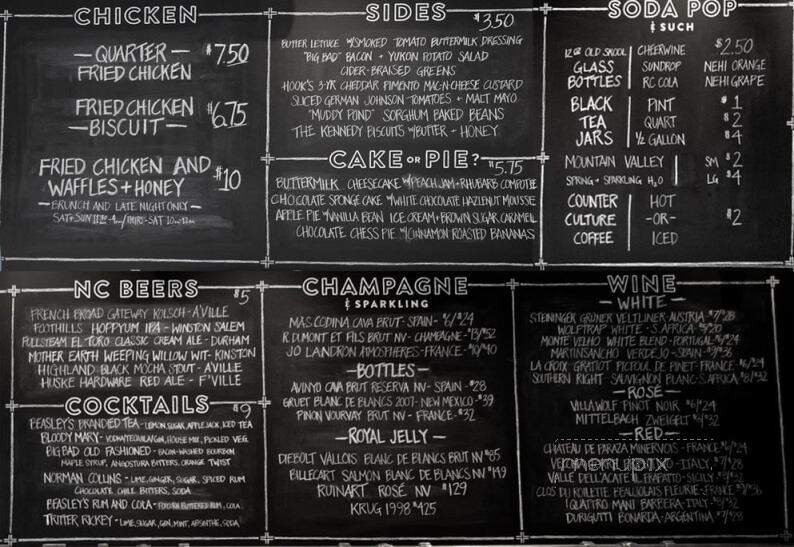 CHICKEN
— QUARTER — $7.50
FRIED CHICKEN
FRIED CHICKEN $6.75
— BISCUIT —
FRIED CHICKEN AND $10
WAFFLES + HONEY
— BRUNCH AND LATE NIGHT ONLY —
SIDES $3.50
BUTTER LETTUCE W/SMOKED TOMATO BUTTERMILK DRESSING
"BIG BAD" BACON + YUKON POTATO SALAD
CIDER-BRAISED GREENS
HOOK'S 3-YR CHEDDAR PIMENTO MAC-N-CHEESE CUSTARD
SLICED GERMAN JOHNSON TOMATOES + MALT MAYO
"MUDDY POND" SORGHUM BAKED BEANS
THE KENNEDY BISCUITS W/BUTTER + HONEY
CAKE OR PIE? $5.75
BUTTERMILK CHEESECAKE W/PEACH JAM + RHUBARB COMPOTE
CHOCOLATE SPONGE CAKE W/WHITE CHOCOLATE HAZELNUT MOUSSE
APPLE PIE W/VANILLA BEAN ICE CREAM + BROWN SUGAR CARAMEL
CHOCOLATE CHESS PIE W/CINNAMON ROASTED BANANAS
SODA POP
& SUCH
12 OZ OLD SKOOL CHEERWINE $2.50
GLASS SUNDROP NEHI ORANGE
BOTTLES RC COLA NEHI GRAPE
BLACK PINT $1
TEA QUART $2
JARS 1/2 GALLON $4
MOUNTAIN VALLEY SM $2
SPRING + SPARKLING H2O LG $4
COUNTER HOT
CULTURE -OR- $2
COFFEE ICED
NC BEERS $5
FRENCH BROAD GATEWAY KOLSCH - A'VILLE
FOOTHILLS HOPPYUM IPA - WINSTON SALEM
FULLSTEAM EL TORO CLASSIC CREAM ALE - DURHAM
MOTHER EARTH WEEPING WILLOW WIT - KINSTON
HIGHLAND BLACK MOCHA STOUT - A'VILLE
HUSKE HARDWARE RED ALE - F'VILLE
COCKTAILS $9
BEASLEY'S BRANDIED TEA - LEMON, SUGAR, APPLE JACK, ICED TEA
BLOODY MARY - VODKA/TEQUILA/GIN, HOUSE MIX, PICKLED VEG.
BIG BAD OLD FASHIONED - BACON-WASHED BOURBON
MAPLE SYRUP, ANGOSTURA BITTERS, ORANGE TWIST
NORMAN COLLINS - LIME, GINGER, SUGAR, SPICED RUM
CHOCOLATE CHILE BITTERS, SODA
BEASLEY'S RUM AND COLA - POPCORN BUTTERED RUM, COLA
TRITTER RICKEY - LIME, SUGAR, GIN, MINT, ABSINTHE, SODA
CHAMPAGNE
& SPARKLING
MAS CODINA CAVA BRUT - SPAIN - $6/$24
R. DUMONT ET FILS BRUT NV - CHAMPAGNE - $13/$52
JO LANDRON ATMOSPHERES - FRANCE - $10/$40
— BOTTLES —
AVINYO CAVA BRUT RESERVA NV - SPAIN - $28
GRUET BLANC DE BLANCS 2007 - NEW MEXICO - $39
PINON VOUVRAY BRUT NV - FRANCE - $32
— ROYAL JELLY —
DIEBOLT VALLOIS BLANC DE BLANCS BRUT NV $85
BILLECART SALMON BLANC DE BLANCS NV $149
RUINART ROSÉ NV $129
KRUG 1998 $425
WINE
— WHITE —
STEININGER GRÜNER VELTLINER AUSTRIA $7/$28
WOLFTRAP WHITE - S. AFRICA - $5/$20
MONTE VELHO WHITE BLEND - PORTUGAL - $6/$24
MARTINSANCHO VERDEJO - SPAIN - $9/$36
LA CROIX GRATIOT PICPOUL DE PINET - FRANCE - $6/$24
SOUTHERN RIGHT SAUVIGNON BLANC - S. AFRICA $8/$32
— ROSÉ —
VILLA WOLF PINOT NOIR $6/$24
MITTELBACH ZWEIGELT $6/$32
— RED —
CHATEAU DE PARAZA MINERVOIS - FRANCE $6/$24
menupix
ITALY, $7/$28
VALLE DELL'ACATE IL FRAPPATO - SICILY
CLOS DU ROILETTE BEAUJOLAIS FLEURIE - FRANCE $9/$36
I QUATTRO MANI BARBERA - ITALY
DURIGUTTI BONARDA - ARGENTINA $7/$28